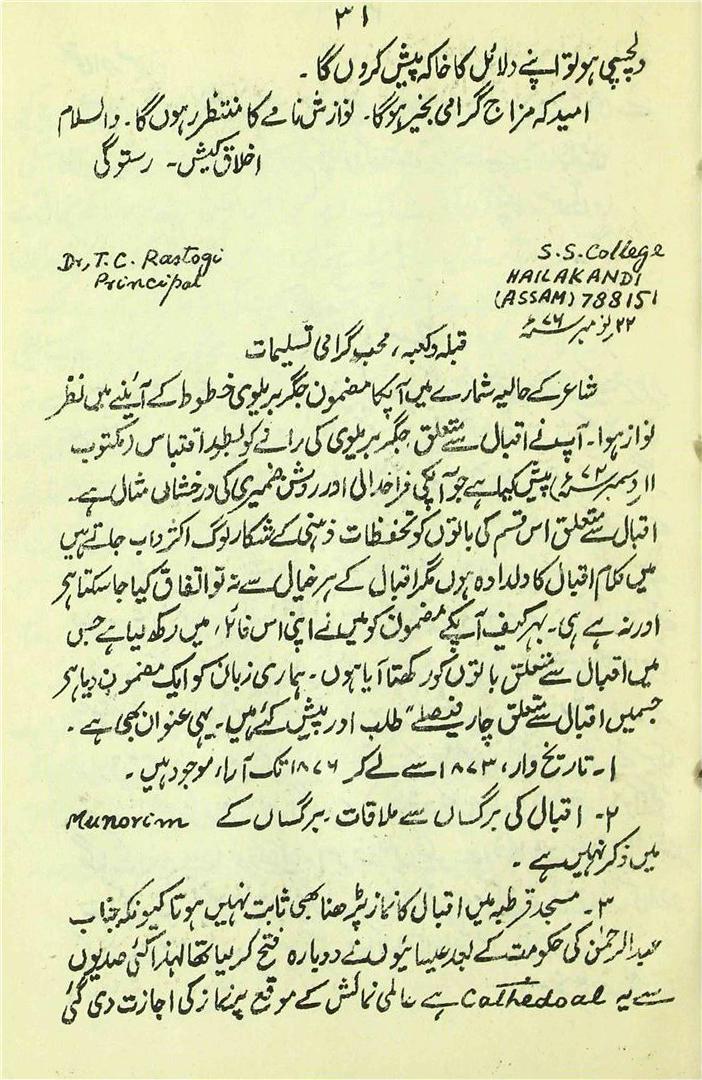 ۳۱
دلچسپی ہو تو اپنے دلائل کا خاکہ پیش کروں گا ۔
امید کہ مزاج گرامی بخیر ہوگا ۔ نوازش نامے کا منتظر رہوں گا ۔ والسلام
اخلاق کیش ۔ رستوگی
Dr, T. C. Rastogi
Principal
S. S. College
HAILAKANDI
(ASSAM) 788151
۲۲ نومبر ۷۶ء
قبلہ و کعبہ ، محب گرامی تسلیمات
شاعر کے حالیہ شمارے میں آپکا مضمون جگر بریلوی خطوط کے آئینے میں نظر
نواز ہوا ۔ آپ نے اقبال سے متعلق جگر بریلوی کی رائے کو بطور اقتباس (مکتوب
۱۱ دسمبر ۷۲ء) پیش کیا ہے جو آپکی فراخدلی اور روشن ضمیری کی درخشاں مثال ہے ۔
اقبال سے متعلق اس قسم کی باتوں کو تحفظات ذہنی کے شکار لوگ اکثر داب جاتے ہیں
میں کلام اقبال کا دلدادہ ہوں مگر اقبال کے ہر خیال سے نہ تو اتفاق کیا جا سکتا ہے
اور نہ ہے ہی ۔ بہر کیف آپکے مضمون کو میں نے اپنی اس فائل میں رکھ لیا ہے جس
میں اقبال سے متعلق باتوں کو رکھتا آیا ہوں ۔ ہماری زبان کو ایک مضمون دیا ہے
جسمیں اقبال سے متعلق چار فیصلے " طلب امور پیش کئے ہیں ۔ یہی عنوان بھی ہے ۔
۱ ۔ تاریخ وار ، ۱۸۷۳ سے لے کر ۱۸۷۶ تک آراء موجود ہیں ۔
۲ ۔ اقبال کی برگساں سے ملاقات ۔ برگساں کے Munorim
میں ذکر نہیں ہے ۔
۳ ۔ مسجد قرطبہ میں اقبال کا نماز پڑھنا بھی ثابت نہیں ہوتا کیونکہ جناب
عبدالرحمٰن کی حکومت کے بعد عیسائیوں نے دوبارہ فتح کر لیا تھا لہذا کئی صدیوں
سے یہ Cathedoal ہے عالمی نمائش کے موقع پر نماز کی اجازت دی گئی